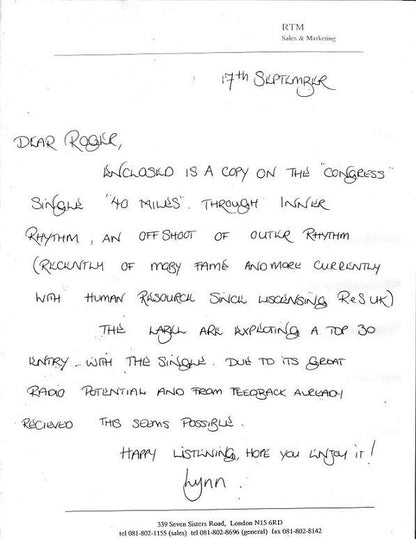 RTM
Sales & Marketing
17th SEPTEMBER
DEAR ROGER,
ENCLOSED IS A COPY ON THE "CONGRESS"
SINGLE "40 MILES". THROUGH INNER
RHYTHM, AN OFFSHOOT OF OUTER RHYTHM
(RECENTLY OF MOBY FAME AND MORE CURRENTLY
WITH HUMAN RESOURCE SINCE LISCENSING ReS UK)
THE LABEL ARE EXPECTING A TOP 30
ENTRY WITH THE SINGLE. DUE TO ITS GREAT
RADIO POTENTIAL AND FROM FEEDBACK ALREADY
RECIEVED THIS SEEMS POSSIBLE.
HAPPY LISTENING, HOPE YOU ENJOY IT!
Lynn.
339 Seven Sisters Road, London N15 6RD
tel 081-802-1155 (sales) tel 081-802-8696 (general) fax 081-802-8142